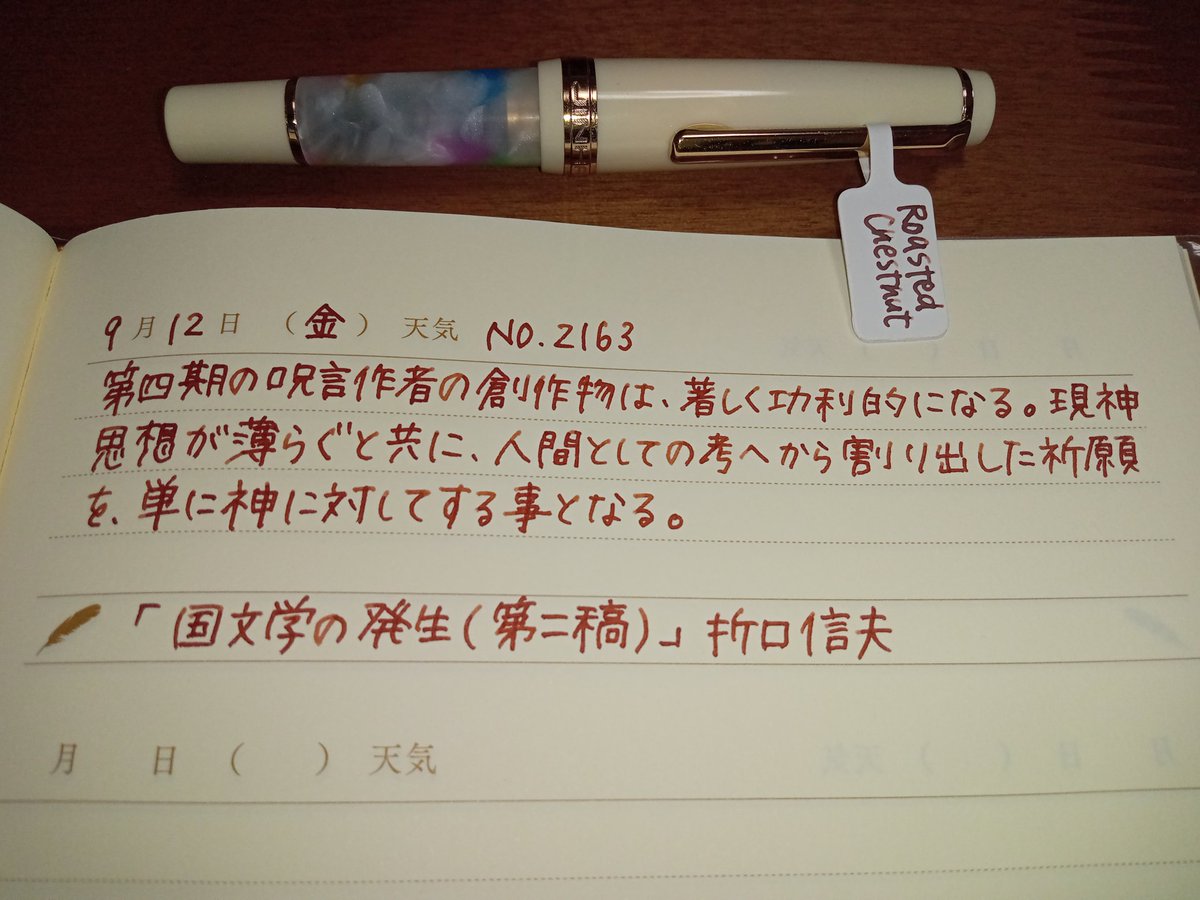 Roasted
Chestnut
9月12日 (金) 天気 NO.2163
第四期の呪言作者の創作物は、著しく功利的になる。現神
思想が薄らぐと共に、人間としての考へから割り出した祈願
を、単に神に対してする事となる。
「国文学の発生(第二稿)」折口信夫
月 日 ( ) 天気